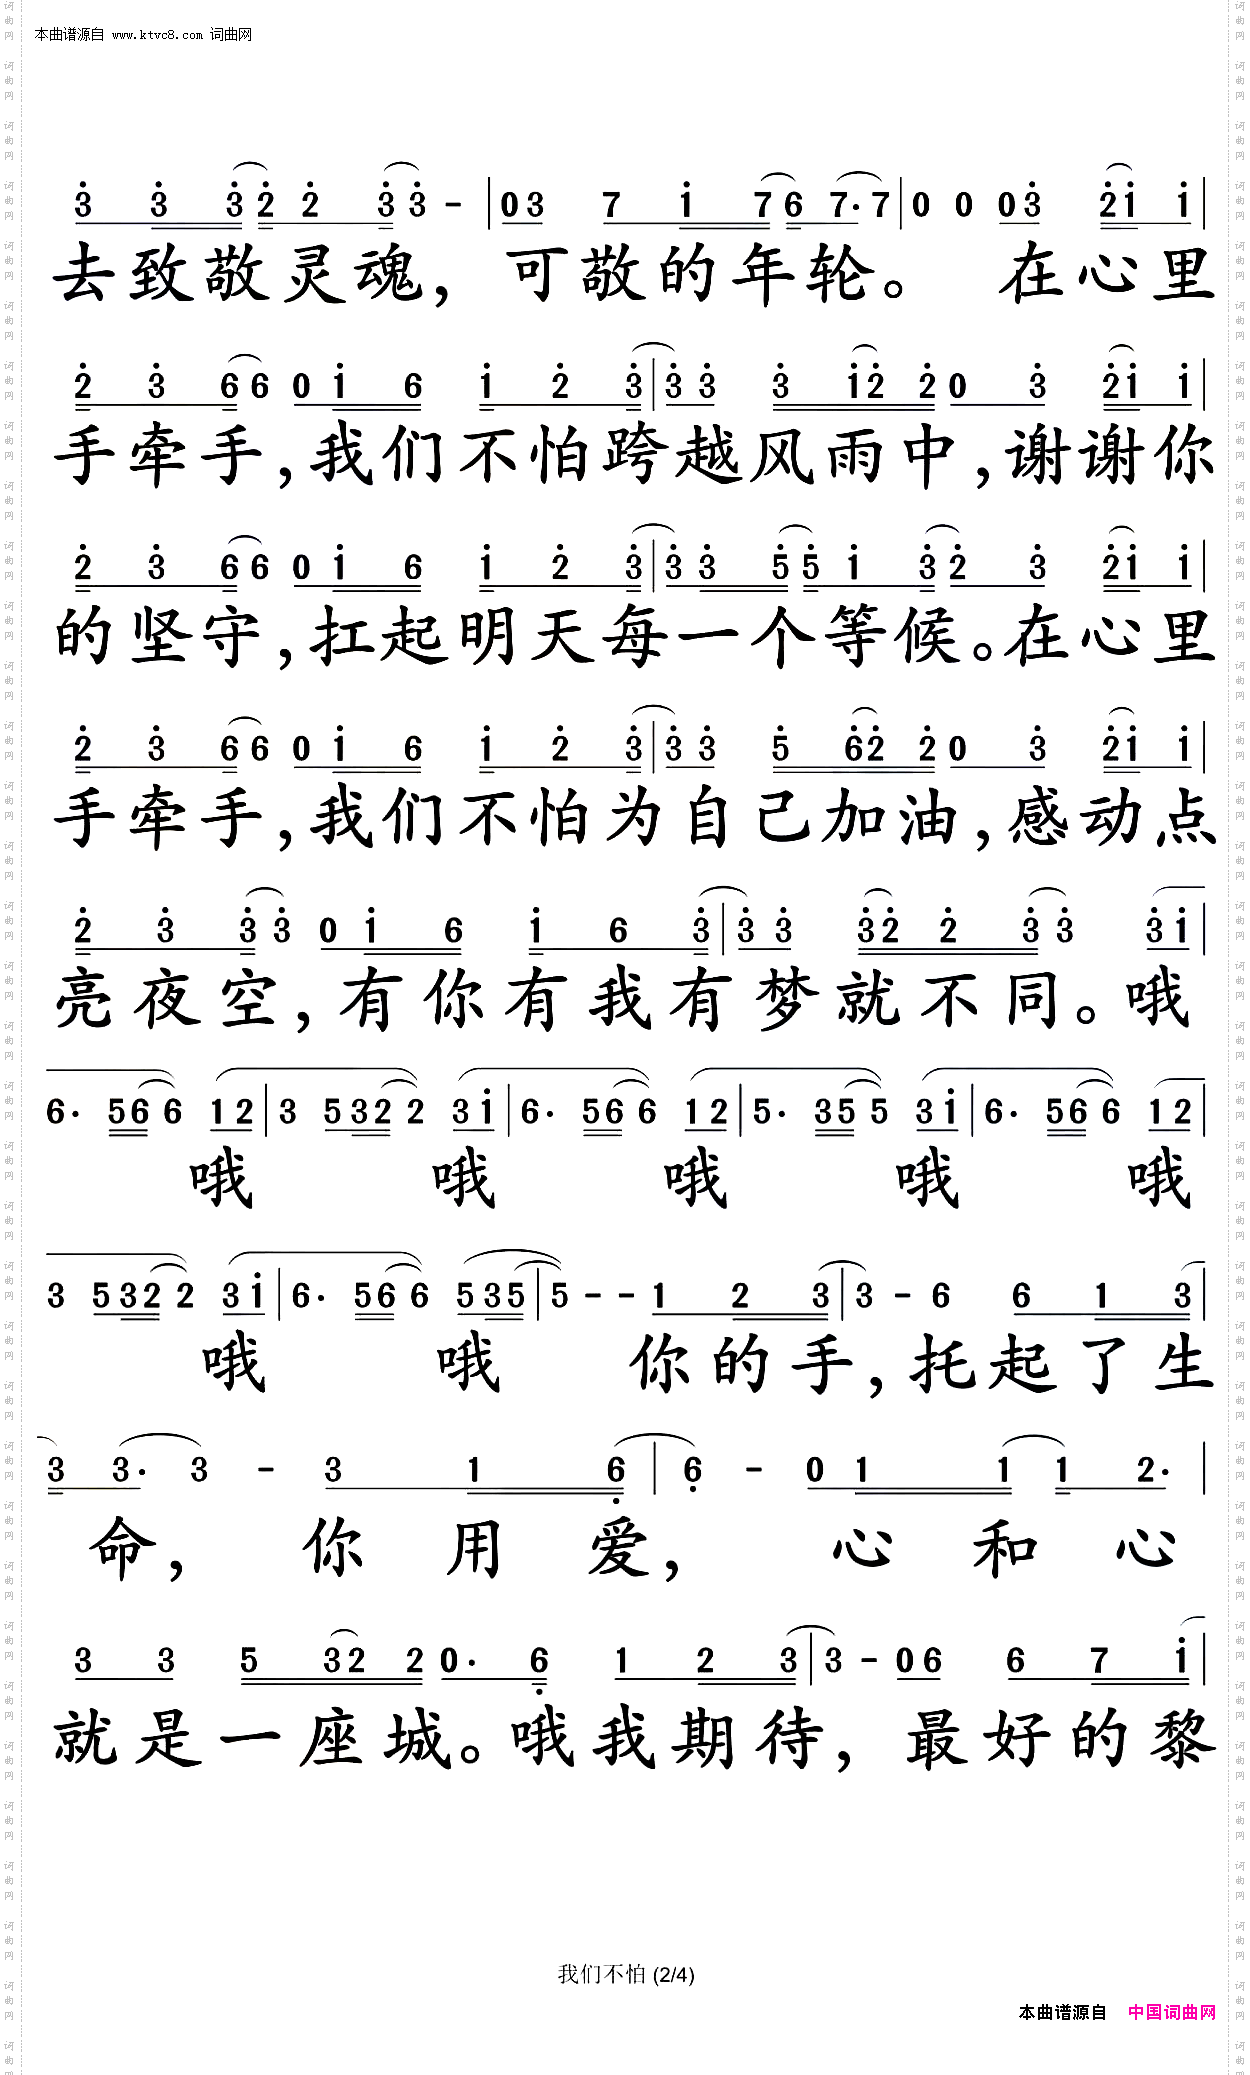 本曲谱源自 www.ktvc8.com 词曲网
3 3 3 2 2 3 3 - | 0 3 7 1 7 6 7· 7 | 0 0 0 3 2 1 1 |
去致敬灵魂，可敬的年轮。在心里
2 3 6 6 0 1 6 1 2 3 | 3 3 3 1 2 2 0 3 2 1 1 |
手牵手，我们不怕跨越风雨中，谢谢你
2 3 6 6 0 1 6 1 2 3 | 3 3 5 5 1 3 2 3 2 1 1 |
的坚守，扛起明天每一个等候。在心里
2 3 6 6 0 1 6 1 2 3 | 3 3 5 6 2 2 0 3 2 1 1 |
手牵手，我们不怕为自己加油，感动点
2 3 3 3 0 1 6 1 6 3 | 3 3 3 2 2 3 3 3 1 |
亮夜空，有你有我有梦就不同。哦
6· 5 6 6 1 2 | 3 5 3 2 2 3 1 | 6· 5 6 6 1 2 | 5· 3 5 5 3 1 | 6· 5 6 6 1 2 |
哦 哦 哦 哦 哦
3 5 3 2 2 3 1 | 6· 5 6 6 5 3 5 | 5 - - 1 2 3 | 3 - 6 6 1 3 |
哦 哦 你的手，托起了生
3 3· 3 - 3 1 6 | 6 - 0 1 1 1 2· |
命，你用爱，心和心
3 3 5 3 2 2 0· 6 1 2 3 | 3 - 0 6 6 7 1 |
就是一座城。哦我期待，最好的黎
我们不怕 (2/4)
本曲谱源自 中国词曲网